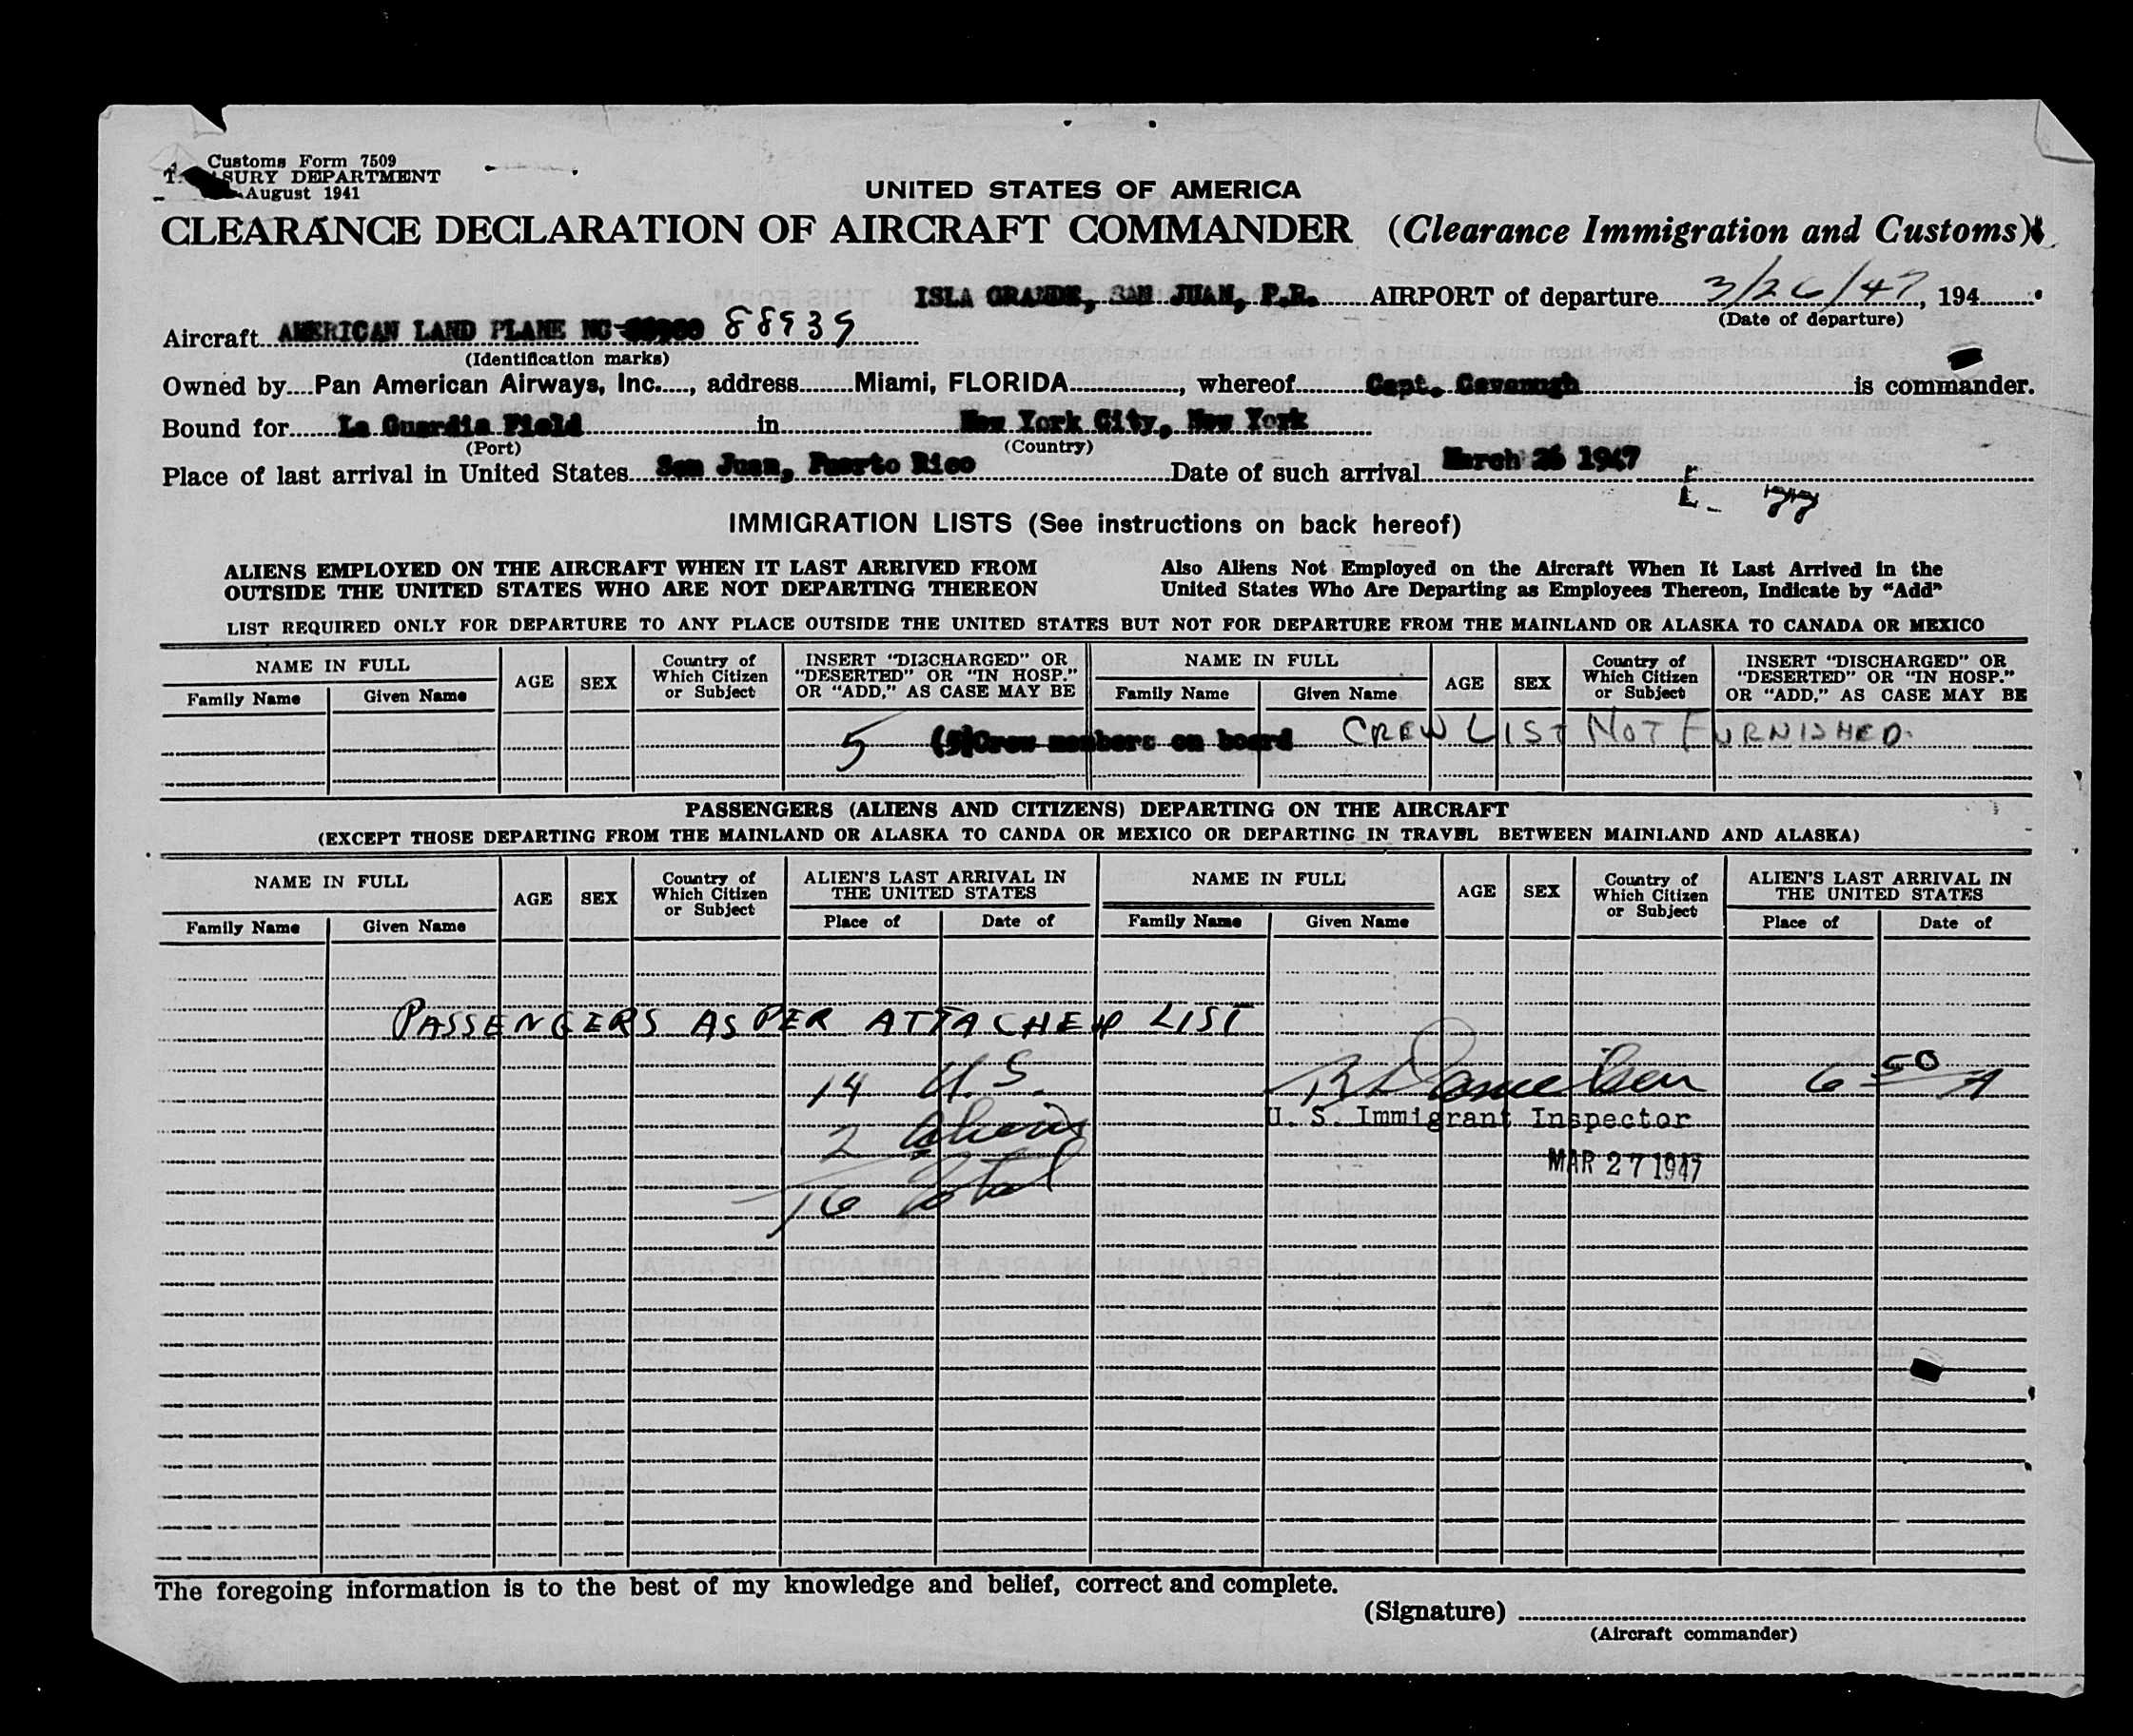 Customs Form 7509
TREASURY DEPARTMENT
August 1941
UNITED STATES OF AMERICA
CLEARANCE DECLARATION OF AIRCRAFT COMMANDER (Clearance Immigration and Customs)
ISLA GRANDE, SAN JUAN, P.R. AIRPORT of departure 3/26/47, 194
(Date of departure)
Aircraft AMERICAN LAND PLANE NC- 88939
(Identification marks)
Owned by Pan American Airways, Inc., address Miami, FLORIDA, whereof Capt. Cavanugh is commander.
Bound for La Guardia Field in New York City, New York
(Port) (Country)
Place of last arrival in United States San Juan, Puerto Rico Date of such arrival March 26 1947
77
IMMIGRATION LISTS (See instructions on back hereof)
ALIENS EMPLOYED ON THE AIRCRAFT WHEN IT LAST ARRIVED FROM OUTSIDE THE UNITED STATES WHO ARE NOT DEPARTING THEREON
Also Aliens Not Employed on the Aircraft When It Last Arrived in the United States Who Are Departing as Employees Thereon, Indicate by "Add"
LIST REQUIRED ONLY FOR DEPARTURE TO ANY PLACE OUTSIDE THE UNITED STATES BUT NOT FOR DEPARTURE FROM THE MAINLAND OR ALASKA TO CANADA OR MEXICO
NAME IN FULL AGE SEX Country of Which Citizen or Subject INSERT "DISCHARGED" OR "DESERTED" OR "IN HOSP." OR "ADD," AS CASE MAY BE NAME IN FULL AGE SEX Country of Which Citizen or Subject INSERT "DISCHARGED" OR "DESERTED" OR "IN HOSP." OR "ADD," AS CASE MAY BE
Family Name Given Name Family Name Given Name
5 (5) Crew members on board CREW LIST NOT FURNISHED.
PASSENGERS (ALIENS AND CITIZENS) DEPARTING ON THE AIRCRAFT
(EXCEPT THOSE DEPARTING FROM THE MAINLAND OR ALASKA TO CANDA OR MEXICO OR DEPARTING IN TRAVEL BETWEEN MAINLAND AND ALASKA)
NAME IN FULL AGE SEX Country of Which Citizen or Subject ALIEN'S LAST ARRIVAL IN THE UNITED STATES NAME IN FULL AGE SEX Country of Which Citizen or Subject ALIEN'S LAST ARRIVAL IN THE UNITED STATES
Family Name Given Name Place of Date of Family Name Given Name Place of Date of
PASSENGERS AS PER ATTACHED LIST
14 U.S. 6 50 A
U. S. Immigrant Inspector
2 Aliens
MAR 27 1947
16 Total
The foregoing information is to the best of my knowledge and belief, correct and complete.
(Signature)
(Aircraft commander)